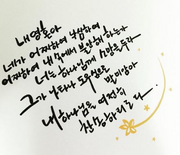 내 영혼아
네가 어찌하여 낙심하며
어찌하여 내 속에서 불안해 하는가
너는 하나님께 소망을 두라
그가 나타나 도우심으로 말미암아
내 하나님을 여전히
찬송하리로다